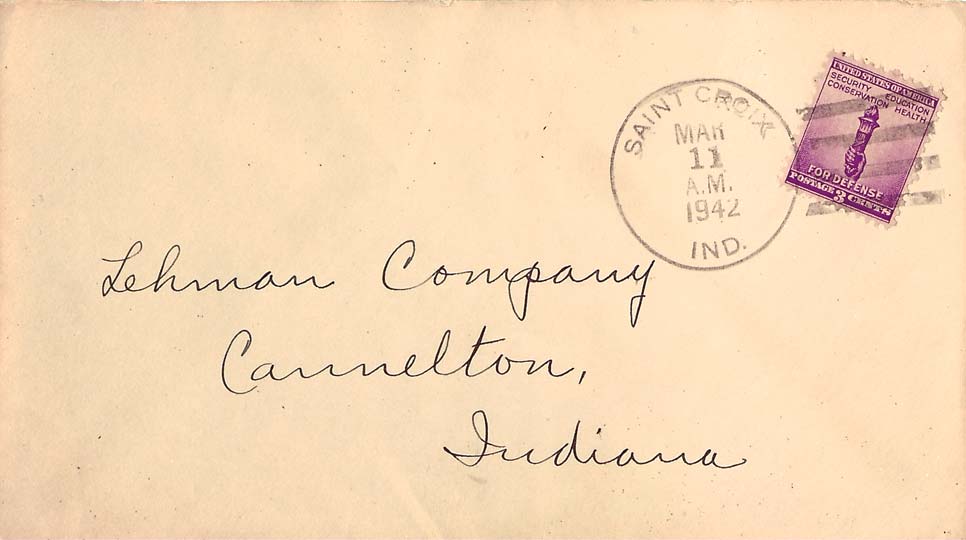 SAINT CROIX
MAR
11
A.M.
1942
IND.
UNITED STATES OF AMERICA
SECURITY EDUCATION
CONSERVATION HEALTH
FOR DEFENSE
POSTAGE 3 CENTS
Lehman Company
Cannelton,
Indiana